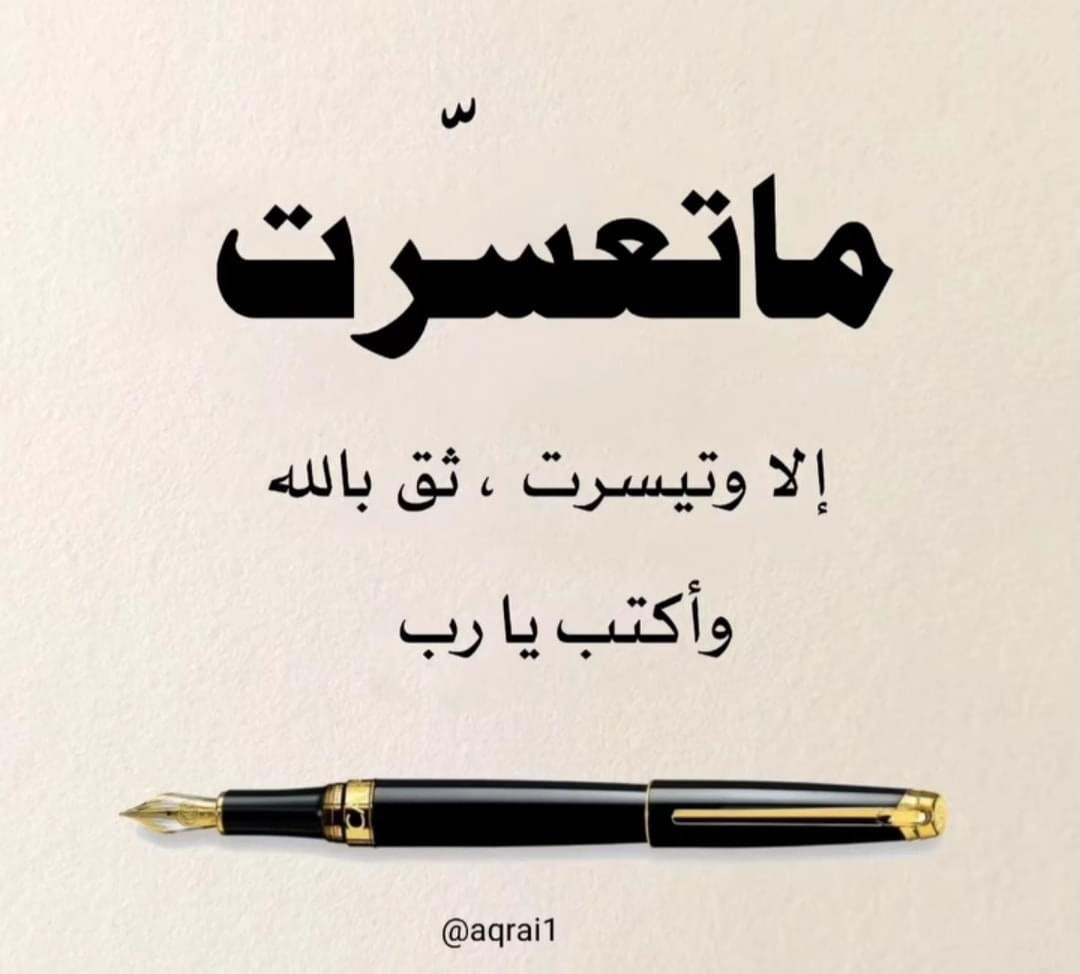 ماتعسّرت
إلا وتيسرت ، ثق بالله
وأكتب يا رب
@aqrai1